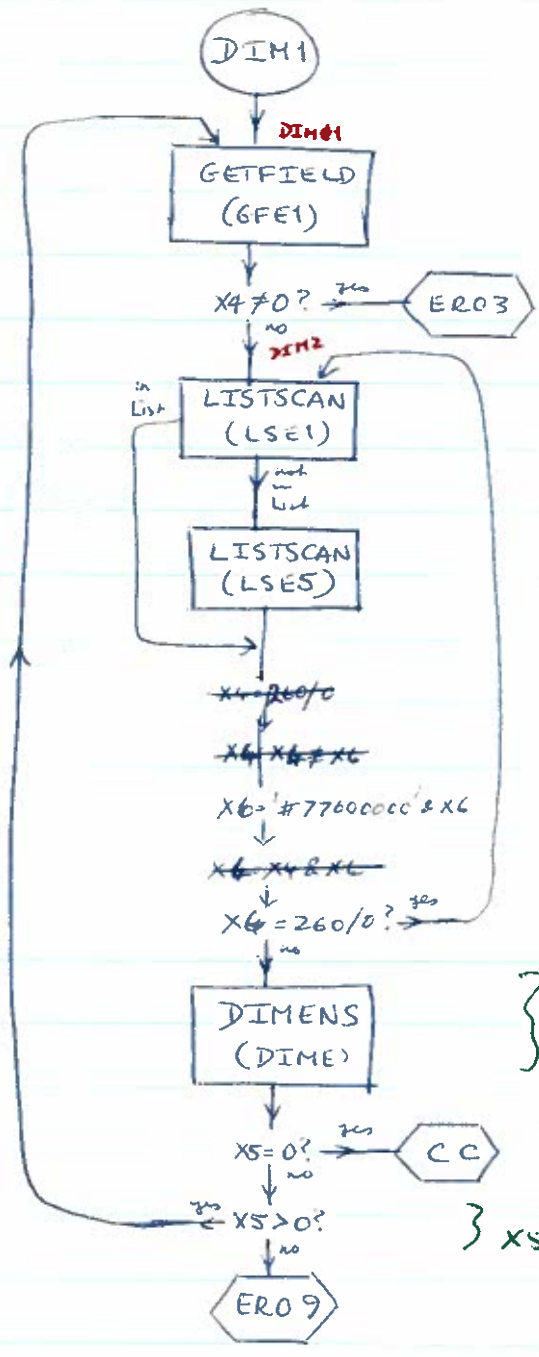 DIM1
DIM1
GETFIELD
(GFE1)
X4≠0? yes
ERO3
no
DIM2
in
List
LISTSCAN
(LSE1)
not
in
List
LISTSCAN
(LSE5)
X4=260/0
X6='#77600000' & X6
X6=260/0? yes
no
DIMENS
(DIME)
X5=0? yes
CC
no
yes X5>0?
} X5
no
ERO9